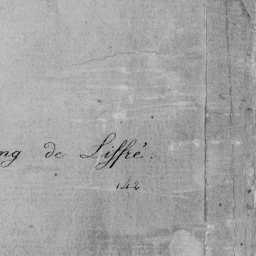 ng de Liffré.
142